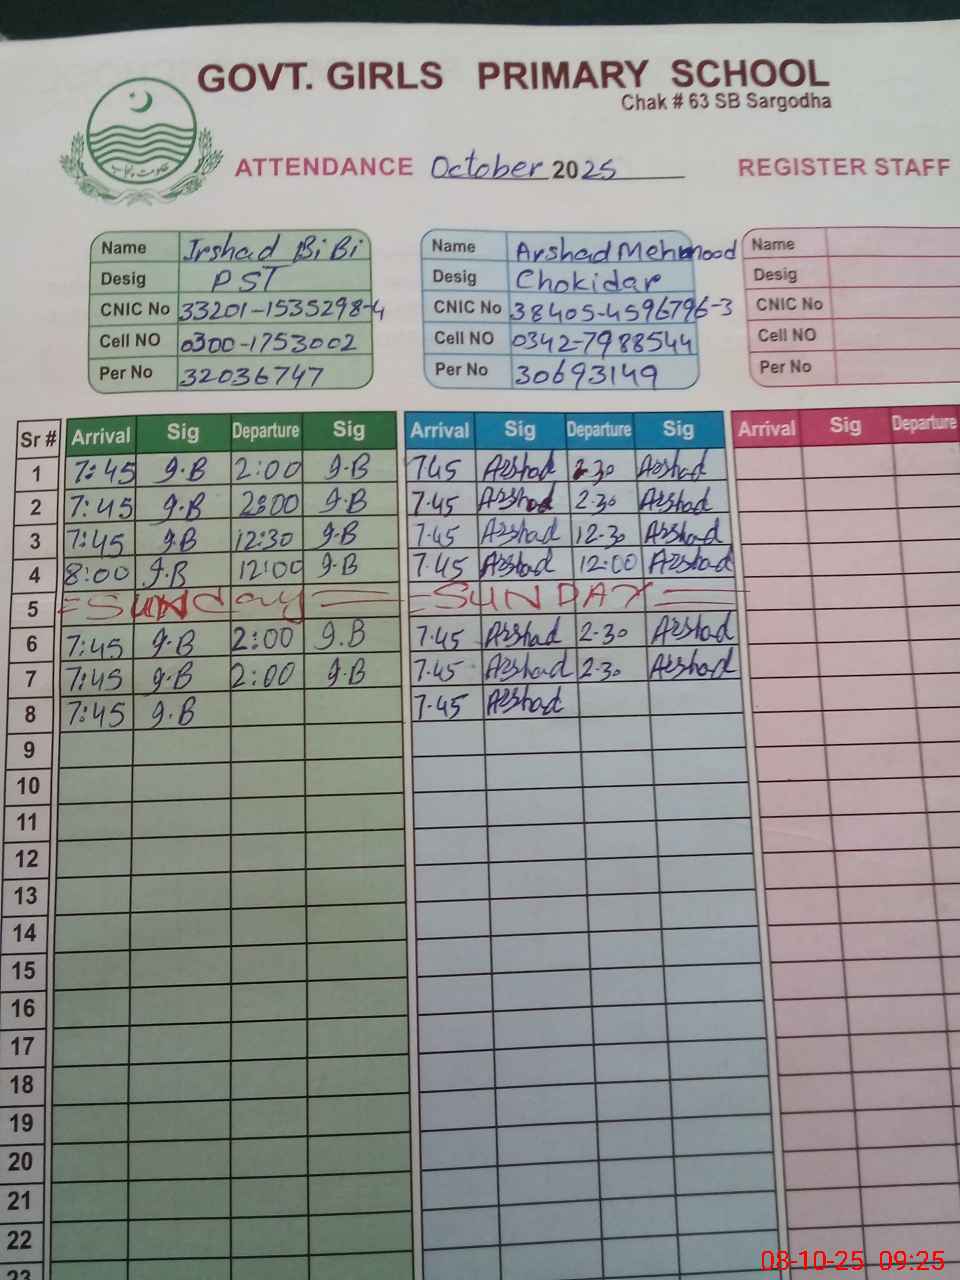 GOVT. GIRLS PRIMARY SCHOOL
Chak # 63 SB Sargodha
حکومت پنجاب
ATTENDANCE October 2025 REGISTER STAFF
Name Irshad BiBi
Desig PST
CNIC No 33201-1535298-4
Cell NO 0300-1753002
Per No 32036747
Name Arshad Mehmood
Desig Chokidar
CNIC No 38405-4596796-3
Cell NO 0342-7988544
Per No 30693149
Name
Desig
CNIC No
Cell NO
Per No
Sr # Arrival Sig Departure Sig Arrival Sig Departure Sig Arrival Sig Departure
1 7:45 g.B 2:00 g.B 745 Arshad 2-30 Arshad
2 7:45 g.B 2:00 g.B 7.45 Arshad 2-30 Arshad
3 7:45 g.B 12:30 g.B 7.45 Arshad 12-30 Arshad
4 8:00 g.B 12:00 g.B 7.45 Arshad 12:00 Arshad
5 = SUNday = = SUNDAY =
6 7:45 g.B 2:00 g.B 7.45 Arshad 2-30 Arshad
7 7:45 g.B 2:00 g.B 7.45 Arshad 2-30 Arshad
8 7:45 g.B 7.45 Arshad
9
10
11
12
13
14
15
16
17
18
19
20
21
22
23
08-10-25 09:25